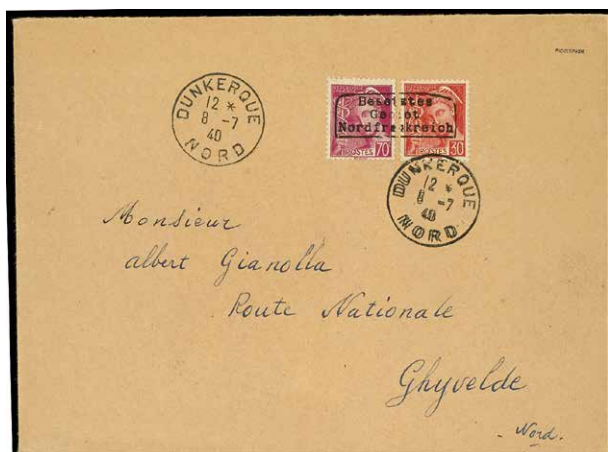 DUNKERQUE
12 *
8 -7
40
NORD
Besetztes
Gebiet
Nordfrankreich
POSTES 70
POSTES 30
DUNKERQUE
12 *
8 -7
40
NORD
Monsieur
albert Gianolla
Route Nationale
Ghyvelde
Nord.